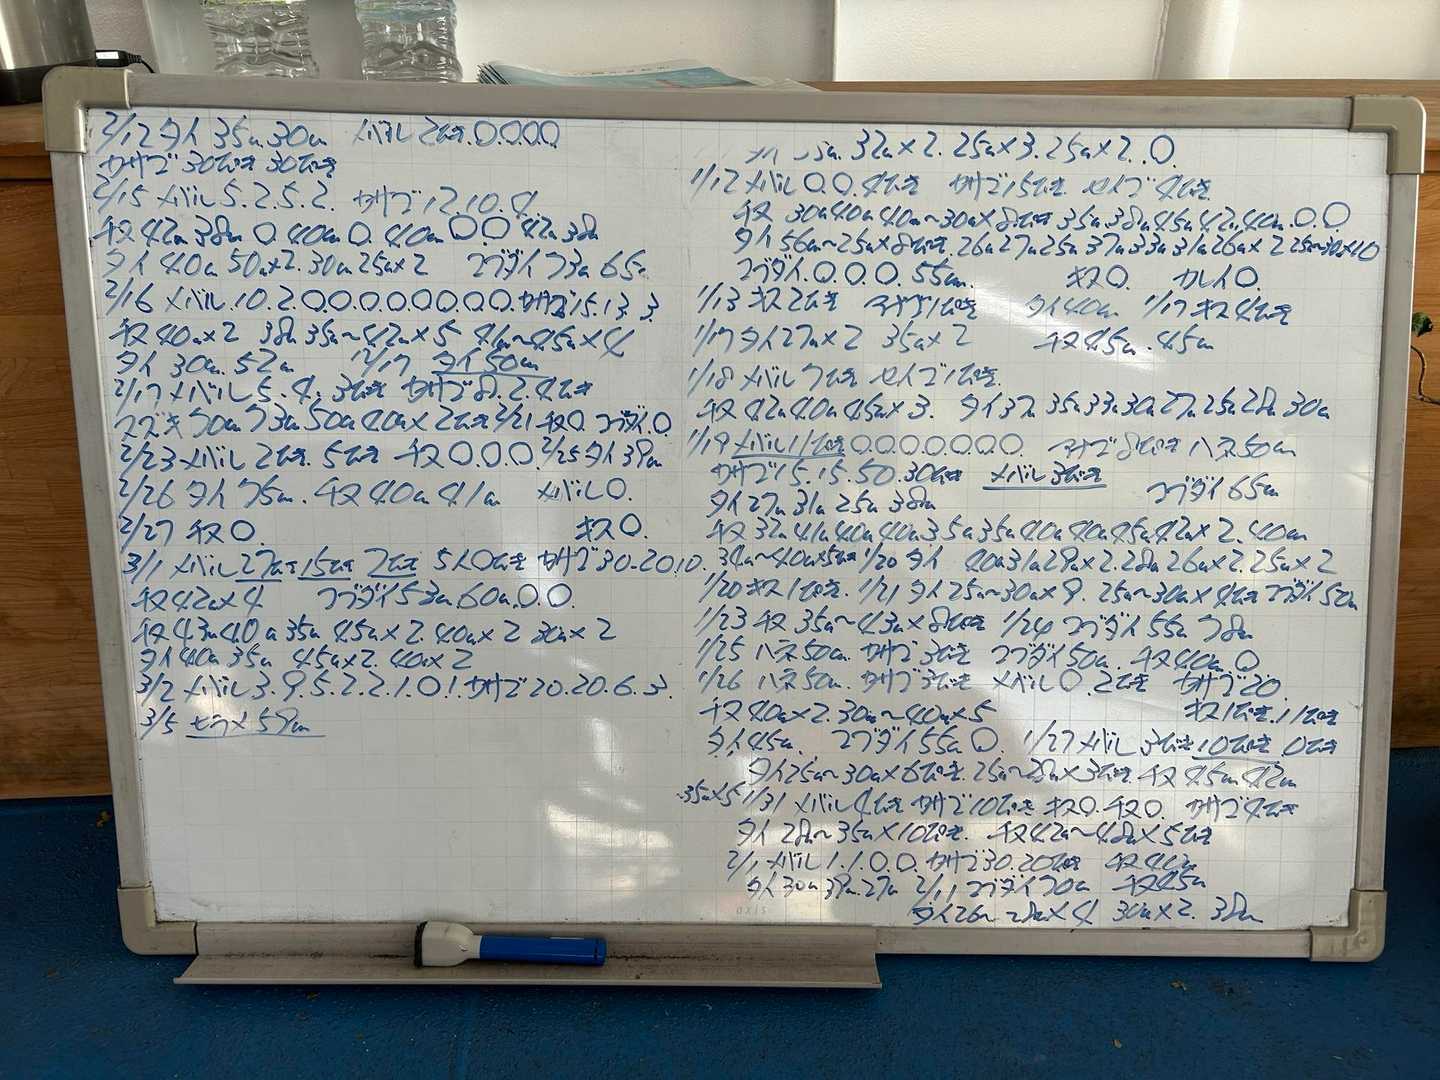 2/12 タイ 35cm 30cm メバル 2ひき.0.0.0.0
カサゴ 30ぴき 30ぴき
2/15 メバル 5.2.5.2. カサゴ 12.10.4
チヌ 42cm 38cm 0. 40cm 0. 40cm 0.0 42cm 38cm
タイ 40cm 50cm×2. 30cm 25cm×2 コブダイ 73cm 65cm
2/16 メバル.10.2.0.0.0.0.0.0.0.0.カサゴ 15.13.3.
チヌ 40cm×2 38cm 35cm〜42cm×5 41cm〜45cm×4
タイ 30cm.52cm 12/17 タイ 50cm
2/17 メバル 5.4.3ひき カサゴ 8.2.4ひき
70cm 73cm 50cm 40cm×2ひき 2/21 チヌ0 コブダイ.0
2/23 メバル 2ひき.5ひき チヌ 0.0.0. 2/25 タイ 39cm
2/26 タイ 75cm. チヌ 40cm 41cm メバル 0.
2/27 チヌ 0. キス 0.
3/1 メバル 27ひき 15ひき 7ひき 5.1.0ひき カサゴ 30.20.10.
チヌ 42cm×4 コブダイ 53cm.60cm.0.0.
チヌ 43cm 40cm 35cm 45cm×2. 40cm×2 30cm×2
タイ 40cm 35cm 45cm×2. 40cm×2
3/2 メバル 3.9.5.2.2.1.0.1.カサゴ 20.20.6.3.
3/5 ヒラメ 59cm
32cm×2. 25cm×3. 25cm×2. .0.
1/12 メバル 0.0.4ひき カサゴ 15ひき セイゴ 4ひき
チヌ 30cm 40cm 40cm〜30cm×8ぴき 35cm 38cm 45cm 42cm.40cm.0.0
タイ 56cm〜25cm×8ぴき.26cm 27cm 25cm 37cm 33cm 31cm 26cm×2 25cm〜30cm×10
コブダイ.0.0.0. 55cm. キス 0. カレイ 0
1/13 キス 2ひき マサゴ 1ぴき タイ 40cm 1/17 キス 4ひき
1/17 タイ 27cm×2 35cm×2 チヌ 45cm.45cm
1/18 メバル 7ひき セイゴ 1ぴき.
チヌ 42cm 40cm 45cm×3. タイ 37cm 35cm 33cm 30cm 27cm 25cm 28cm 30cm
1/19 メバル 11ぴき 0.0.0.0.0.0.0 マサゴ 8ぴき ハネ 50cm
カサゴ 15.15.50.30ぴき メバル 3びき コブダイ 65cm
タイ 27cm 31cm 25cm 38cm
チヌ 32cm 41cm 40cm 40cm 35cm 35cm 40cm 40cm 45cm 42cm×2.40cm
34cm〜40cm×5ひき 1/20 タイ 40cm 31cm 29cm×2.28cm 26cm×2.25cm×2
1/20 キス 1ぴき. 1/21 タイ 25cm〜30cm×9. 25cm〜30cm×4ひき コブダイ 50cm
1/23 チヌ 35cm〜43cm×8ぴき 1/24 コブダイ 55cm 78cm
1/25 ハネ 50cm. カサゴ 3びき コブダイ 50cm. チヌ 40cm.0
1/26 ハネ 50cm. カサゴ 3びき メバル 0.2ひき カサゴ 20
チヌ 40cm×2.30cm〜40cm×5 キス 1ぴき.11ぴき
タイ 45cm. コブダイ 55cm 0. 1/27 メバル 3びき 10ぴき.0ひき
タイ 25cm〜30cm×6ぴき.25cm〜28cm×3びき チヌ 45cm 42cm
.35cm×5 1/31 メバル 4ひき カサゴ 10ぴき キス 0. チヌ 0. カサゴ 4ひき
タイ 28cm〜35cm×10ぴき. チヌ 42cm〜48cm×5ひき
2/1 メバル 1.1.0.0. カサゴ 30.20ぴき チヌ 40cm
タイ 30cm 39cm 27cm 2/11 コブダイ 70cm チヌ 45cm
タイ 26cm 28cm×4 30cm×2. 38cm